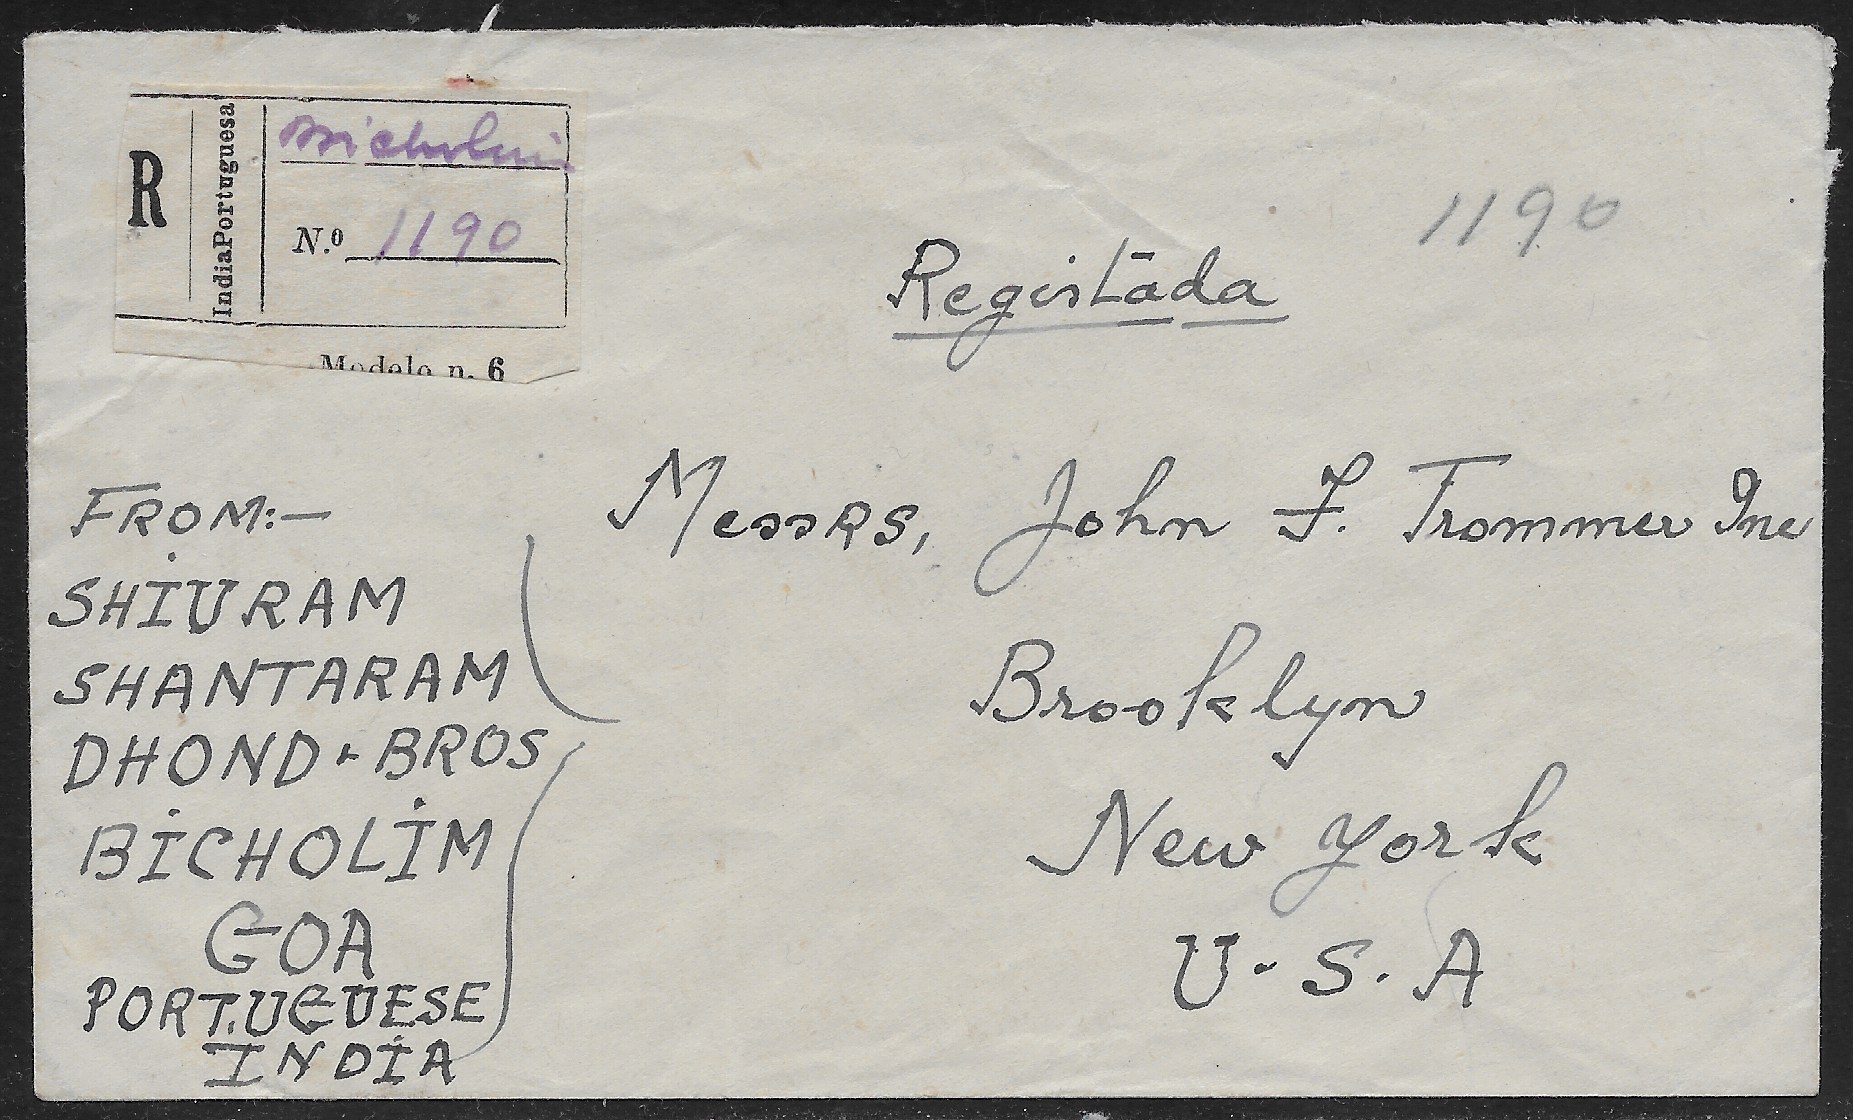 R
IndiaPortuguesa
Bicholim
N.º 1190
Modelo n. 6
1190
Registada
Messrs, John F. Trommer Inc
Brooklyn
New York
U.S.A
FROM:-
SHIVRAM
SHANTARAM
DHOND & BROS
BICHOLIM
GOA
PORTUGUESE
INDIA